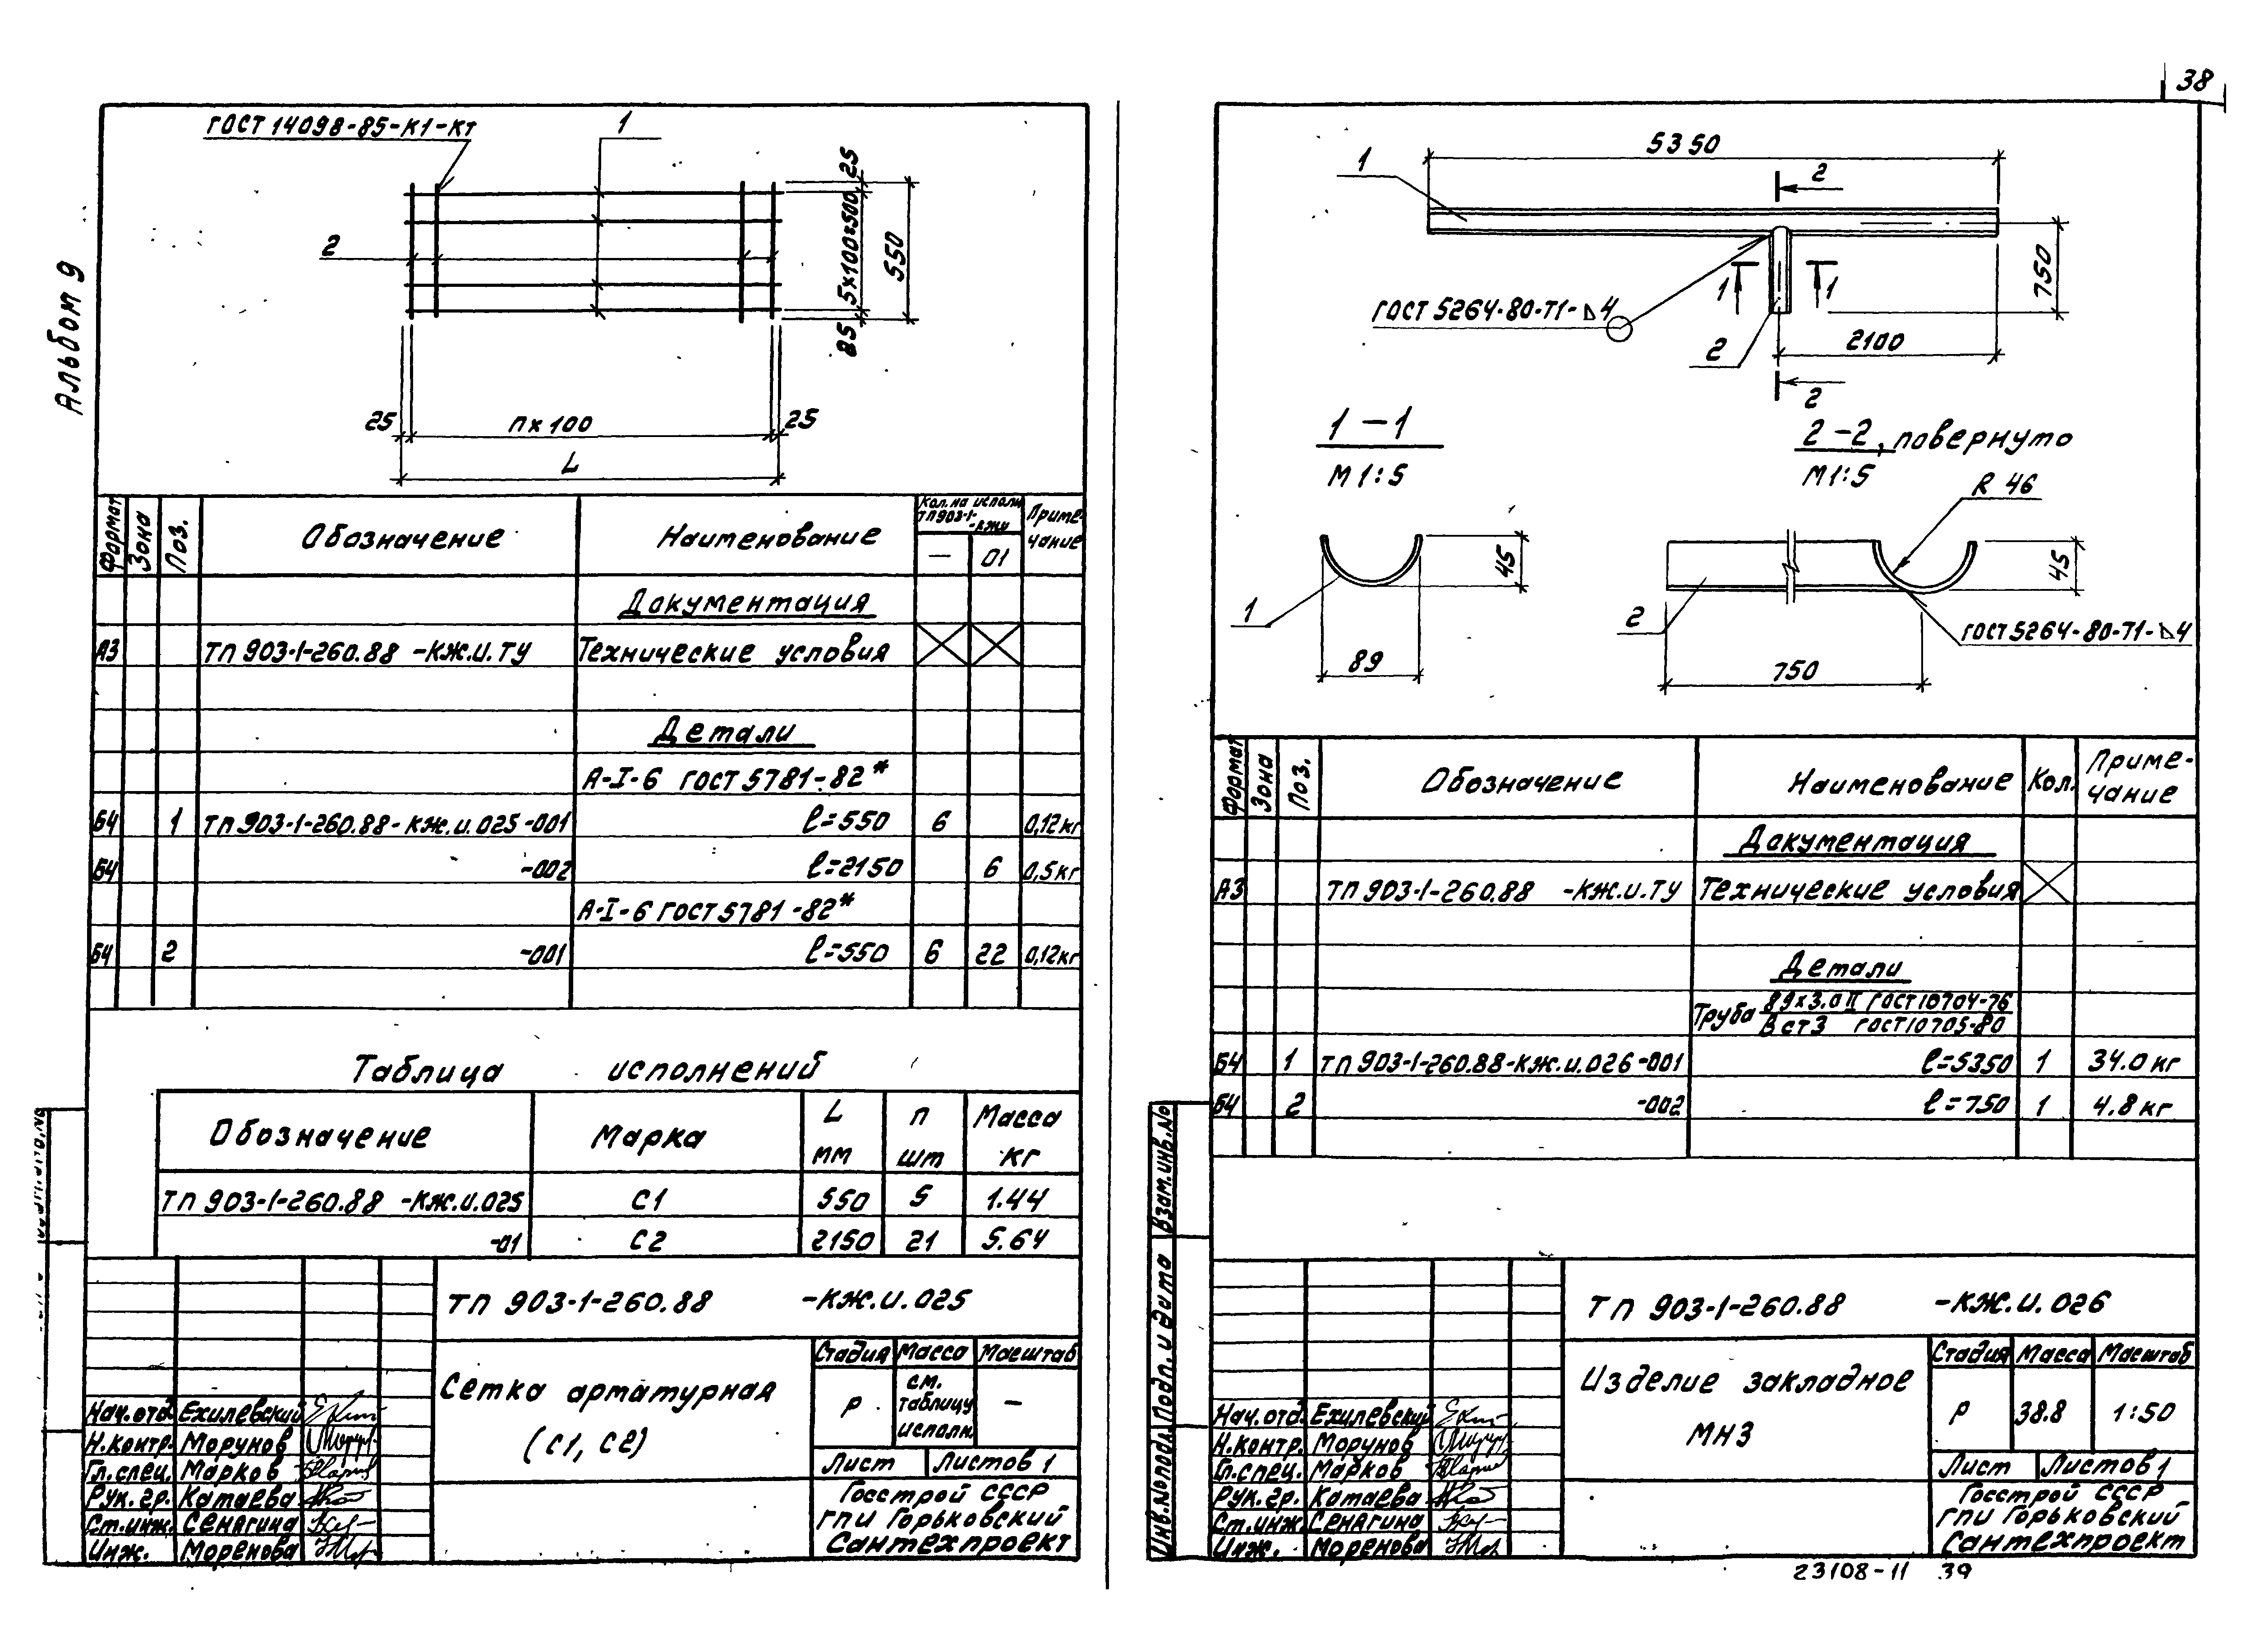 38
Альбом 9
ГОСТ 14098-85-К1-Кт
1
2
25
5×100=500
25
550
25
п×100
25
L
Формат Зона Поз. Обозначение Наименование Кол. на исполн. ТП903-1- -КЖИ Приме-чание
— 01
Документация
А3 ТП 903-1-260.88 -КЖ.И.ТУ Технические условия
Детали
А-I-6 ГОСТ 5781-82*
Б4 1 ТП 903-1-260.88-КЖ.И.025-001 ℓ=550 6 0,12кг
Б4 -002 ℓ=2150 6 0,5кг
А-I-6 ГОСТ 5781-82*
Б4 2 -001 ℓ=550 6 22 0,12кг
Таблица исполнений
Обозначение Марка L мм п шт Масса кг
ТП 903-1-260.88 -КЖ.И.025 С1 550 5 1.44
-01 С2 2150 21 5.64
ТП 903-1-260.88 -КЖ.И.025
Сетка арматурная
(С1, С2)
Стадия Масса Масштаб
Р см. таблицу исполн. —
Лист Листов 1
Госстрой СССР
ГПИ Горьковский
Сантехпроект
Нач.отд. Ехилевский
Н.контр. Морунов
Гл.спец. Марков
Рук.гр. Катаева
Ст.инж. Сенягина
Инж. Моренова
5350
1
2
750
1 1
ГОСТ 5264-80-Т1-⊿4
2
2100
2
1-1
М 1:5
2-2, повернуто
М 1:5
R 46
45
1
89
45
2
ГОСТ 5264-80-Т1-⊿4
750
Формат Зона Поз. Обозначение Наименование Кол. Приме-чание
Документация
А3 ТП 903-1-260.88 -КЖ.И.ТУ Технические условия
Детали
Труба 89×3.0 II ГОСТ 10704-76
В ст3 ГОСТ 10705-80
Б4 1 ТП 903-1-260.88-КЖ.И.026-001 ℓ=5350 1 34.0 кг
Б4 2 -002 ℓ=750 1 4.8 кг
Взам.инв.№
Подп. и дата
Инв.№подл.
ТП 903-1-260.88 -КЖ.И.026
Изделие закладное
МН3
Стадия Масса Масштаб
Р 38.8 1:50
Лист Листов 1
Госстрой СССР
ГПИ Горьковский
Сантехпроект
Нач.отд. Ехилевский
Н.контр. Морунов
Гл.спец. Марков
Рук.гр. Катаева
Ст.инж. Сенягина
Инж. Моренова
23108-11 39